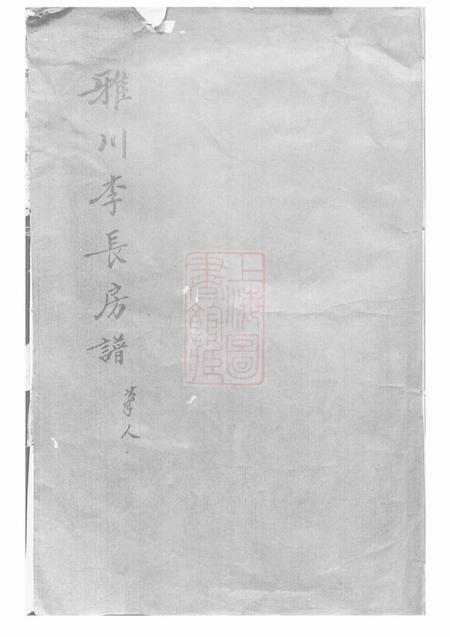 雅川李長房譜
人
上海圖書館藏